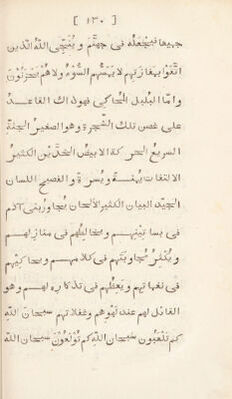 [ ١٣٠ ]
جميعا فيجعله فى جهنّم ويُنجّى اللهُ الذين
اتَّقَوْا بمفازتهم لا يمسّهم السُّوءُ ولا هُمْ يَحْزَنُونَ
وامّا البلبل الحاكى فهو ذاك القاعد
على غصن تلك الشجرة وهو الصغير الجثّة
السريع الحركة الابيض الخدّين الكثير
الالتفات يمنة ويسرة والفصيح اللسان
الجيّد البيان الكثير الالحان يجاور بنى آدم
فى بساتينهم ويخالطهم فى منازلهم
ويُكثر مجاوبتهم فى كلامهم ويحاكيهم
فى نغماتهم ويعظهم فى تذكاره لهم وهو
القائل لهم عند لهوهم وغفلاتهم سبحان الله
كم تلعبون سبحان الله كم تُولَعُونَ سبحان الله